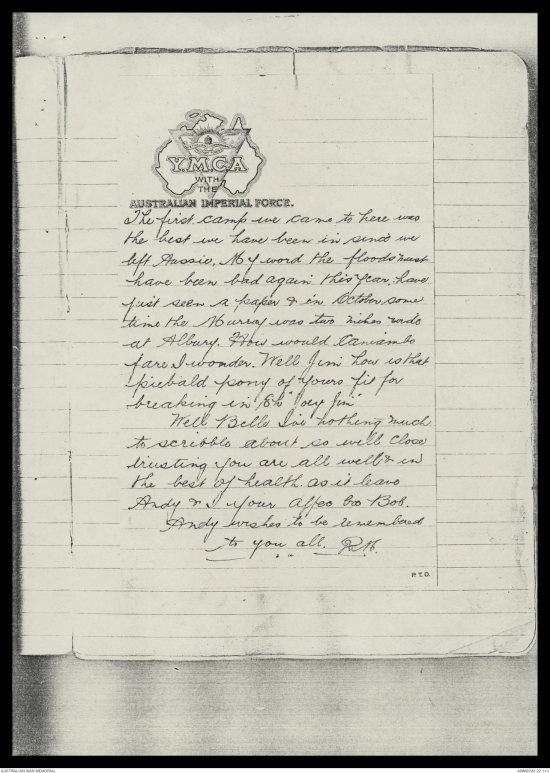 Y.M.C.A
WITH
THE
AUSTRALIAN IMPERIAL FORCE.
The first camp we came to here was
the best we have been in since we
left Aussie. My word the floods must
have been bad again this year, have
just seen a paper & in October some
time the Murray was two miles wide
at Albury. How would Caniambo
fare I wonder. Well Jim how is that
piebald pony of yours fit for
breaking in, Eh "Joey Jim"
Well Belle I've nothing much
to scribble about so will close
trusting you are all well & in
the best of health as it leaves
Andy & I your affec bro Bob.
Andy wishes to be remembered
to you all.
P.T.O.
AUSTRALIAN WAR MEMORIAL